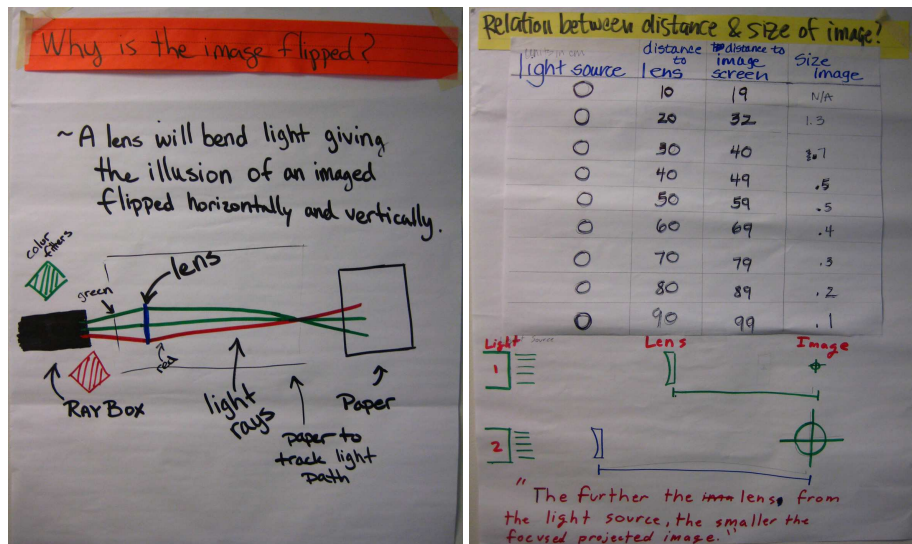 Why is the image flipped?
~ A lens will bend light giving
the illusion of an imaged
flipped horizontally and vertically.
color
filters
green
lens
red
RAY BOX
light
rays
paper to
track light
path
Paper
Relation between distance & size of image?
light source distance to lens distance to image screen Size image
10 19 N/A
20 32 1.3
30 40 .7
40 49 .5
50 59 .5
60 69 .4
70 79 .3
80 89 .2
90 99 .1
Light Lens Image
1
2
"The further the lens, from
the light source, the smaller the
focused projected image."